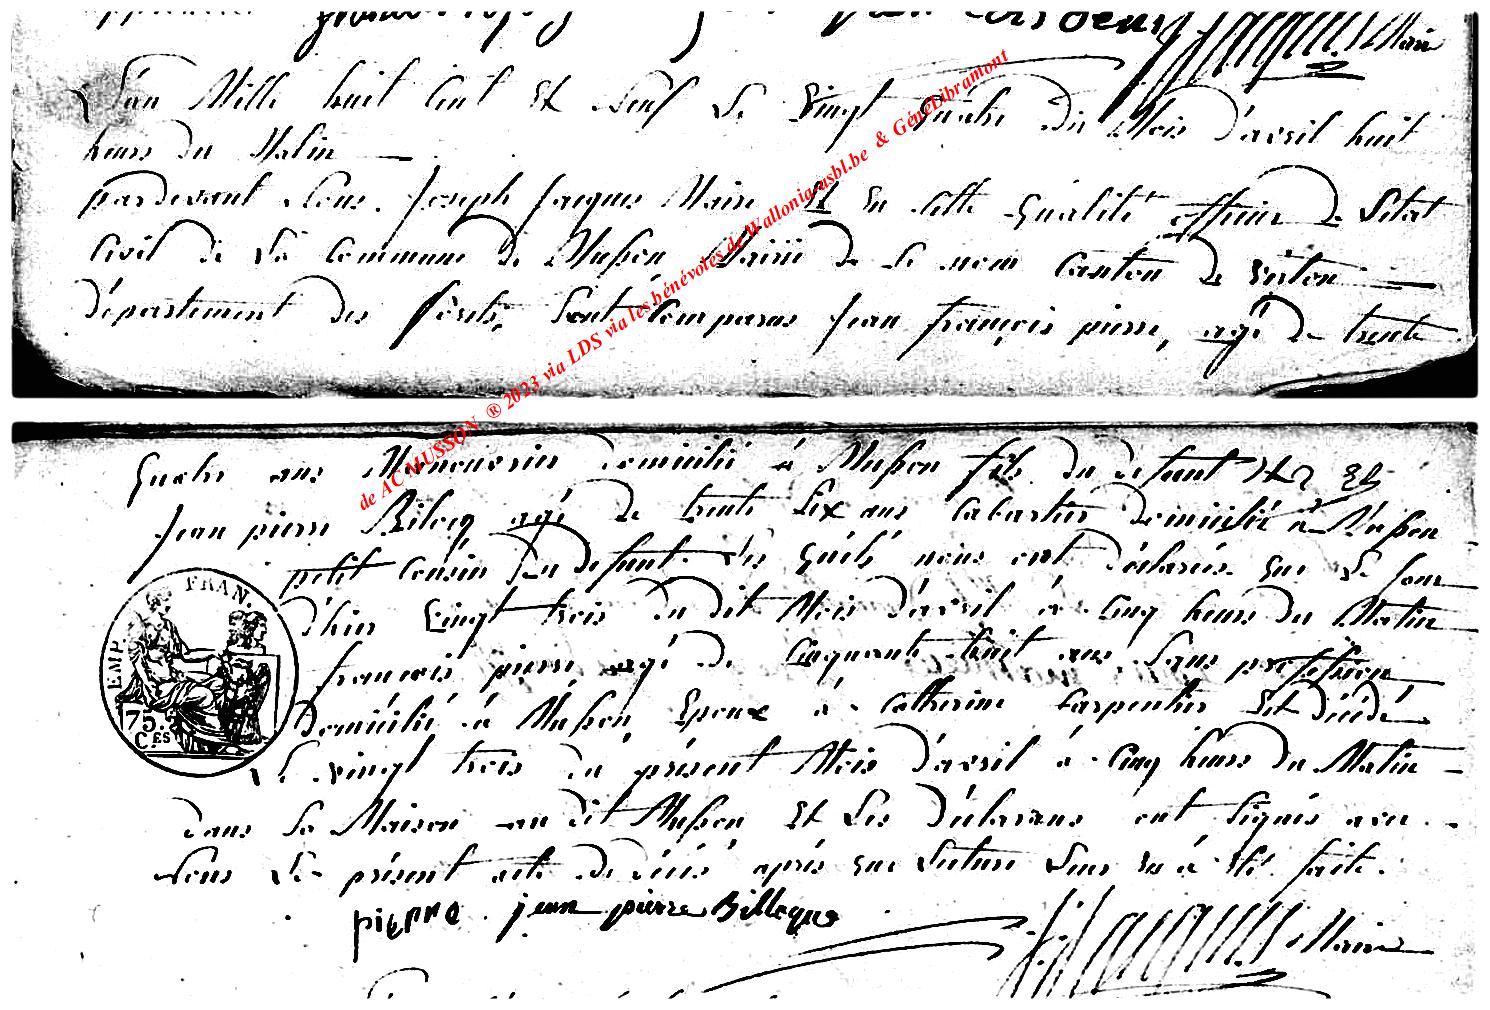 L'an Mille huit Cent Et Neuf Le Vingt quatre du Mois d'avril huit
heurs du Matin
pardevant Nous Joseph Jacques Maire Et En Cette qualité officier De L'état
Civil de La Commune de Musson Mairie de Ce nom Canton De Virton
département des forêts, Sont Comparus Jean françois pierre, agé De trente
quatre ans Manouvrier domicilié à Musson fils du defunt Et
Jean pierre Bilocq agé De trente Six ans Cabartier Domicilié à Musson
petit Cousin du defunt Les quels nous ont déclarés que Le Jour
d'hier Vingt trois du dit Mois d'avril à Cinq heurs du Matin
françois pierre agé de Cinquante huit ans Sans profession
Domicilié à Musson, Epoux à Catherine Carpentier Est Décédé
Le vingt trois du présent Mois d'avril à Cinq heurs du Matin
dans Sa Maison au dit Musson Et Les Déclarans ont Signés avec
Nous Le présent acte de Décès après que Lecture Leur En à Eté faite.
pierre jean pierre Billeque
J Jacques Maire
EMP. FRAN.
75 C.ES
de AC MUSSON ® 2023 via LDS via les bénévoles de Wallonia-asbl.be & GénéLibramont